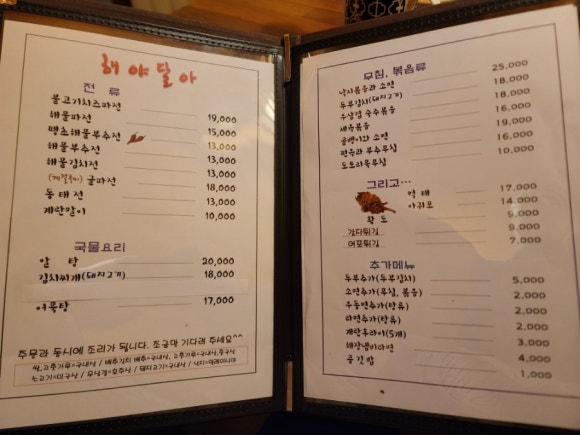 해야달아
전 류
불고기치즈파전 19,000
해물파전 15,000
땡초해물부추전 13,000
해물부추전 13,000
해물김치전 13,000
(계절특미) 굴파전 18,000
동태전 13,000
계란말이 10,000
국물요리
알 탕 20,000
김치찌개(돼지고기) 18,000
어묵탕 17,000
주문과 동시에 조리가 됩니다. 조금만 기다려 주세요^^
쌀,고춧가루=국내산 / 배추김치 배추=국내산, 고춧가루=국내산,중국산
소고기=미국산 / 우삼겹=호주산 / 돼지고기=국내산 /
무침, 볶음류
낙지볶음과 소면 25,000
두부김치(돼지고기) 18,000
우삼겹 숙주볶음 18,000
제육볶음 16,000
골뱅이와 소면 19,000
편육과 부추무침 16,000
도토리묵무침 10,000
그리고...
먹 태 17,000
아귀포 14,000
황 도 9,000
감자튀김 9,000
어포튀김 7,000
추가메뉴
두부추가(두부김치) 5,000
소면추가(무침, 볶음) 2,000
우동면추가(탕류) 2,000
라면추가(탕류) 2,000
계란후라이(5개) 3,000
해장냄비라면 4,000
공깃밥 1,000